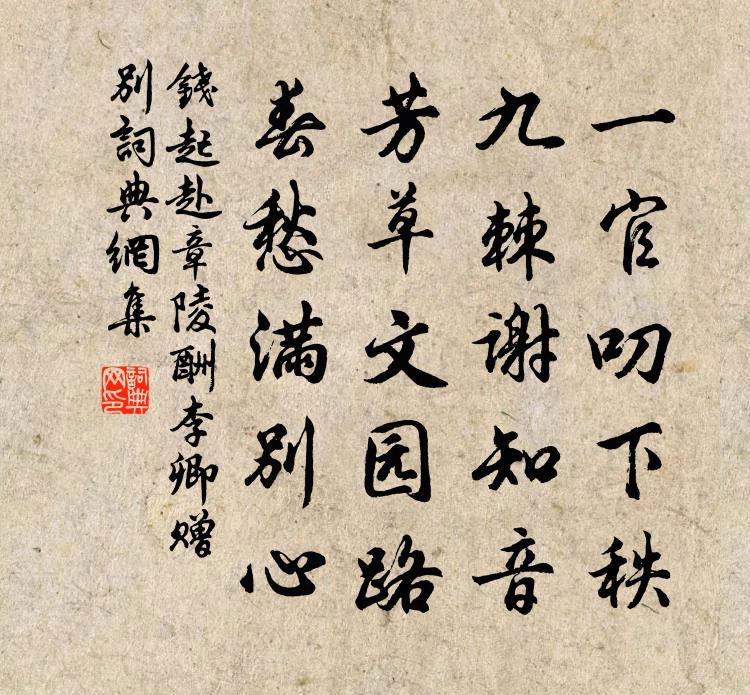 一官叨下秩
九棘謝知音
芳草文园路
春愁满别心
錢起赴章陵酬李卿赠
别詞典網集
詞典
网印